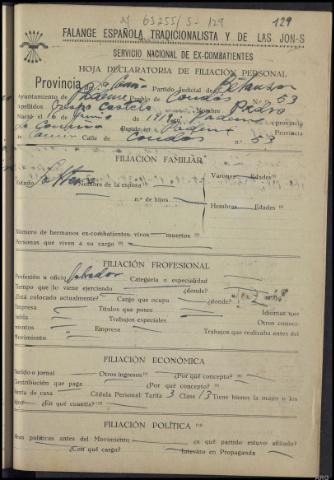 63255/5-129
129
FALANGE ESPAÑOLA TRADICIONALISTA Y DE LAS JON-S
SERVICIO NACIONAL DE EX-COMBATIENTES
HOJA DECLARATORIA DE FILIACIÓN PERSONAL
Provincia Partido Judicial de Betanzos
Ayuntamiento de Paderne Pueblo de Condús N.º 53
apellidos Crespo Castelo Nombre Pedro
Nació el 16 de junio de 191 provincia
de Coruña Reside en Paderne Provincia
de Calle de Condús n.º 53
FILIACIÓN FAMILIAR
Estado Soltero Nombre de la esposa Varones Edades
n.º de hijos
Hembras Edades
Número de hermanos ex-combatientes vivos muertos
Personas que viven a su cargo
FILIACIÓN PROFESIONAL
Profesión u oficio Labrador Categoría o especialidad
Tiempo que lo viene ejerciendo ¿dónde?
Está colocado actualmente? Cargo que ocupa ¿donde?
Empresa Títulos que posee Idiomas que
Trabajos especiales Otros conoci-
mientos Empresa Trabajos que realizaba antes del
Movimiento
FILIACIÓN ECONÓMICA
Sueldo o jornal Otros ingresos ¿Por qué concepto?
Contribución que paga ¿Por qué concepto?
Renta de casa Cédula Personal: Tarifa 3 Clase 13 Tiene bienes la mujer o los
hijos ¿En qué cuantía?
FILIACIÓN POLÍTICA
Ideas políticas antes del Movimiento ¿a qué partido estuvo afiliado?
¿Con qué cargo? Intervino en Propaganda